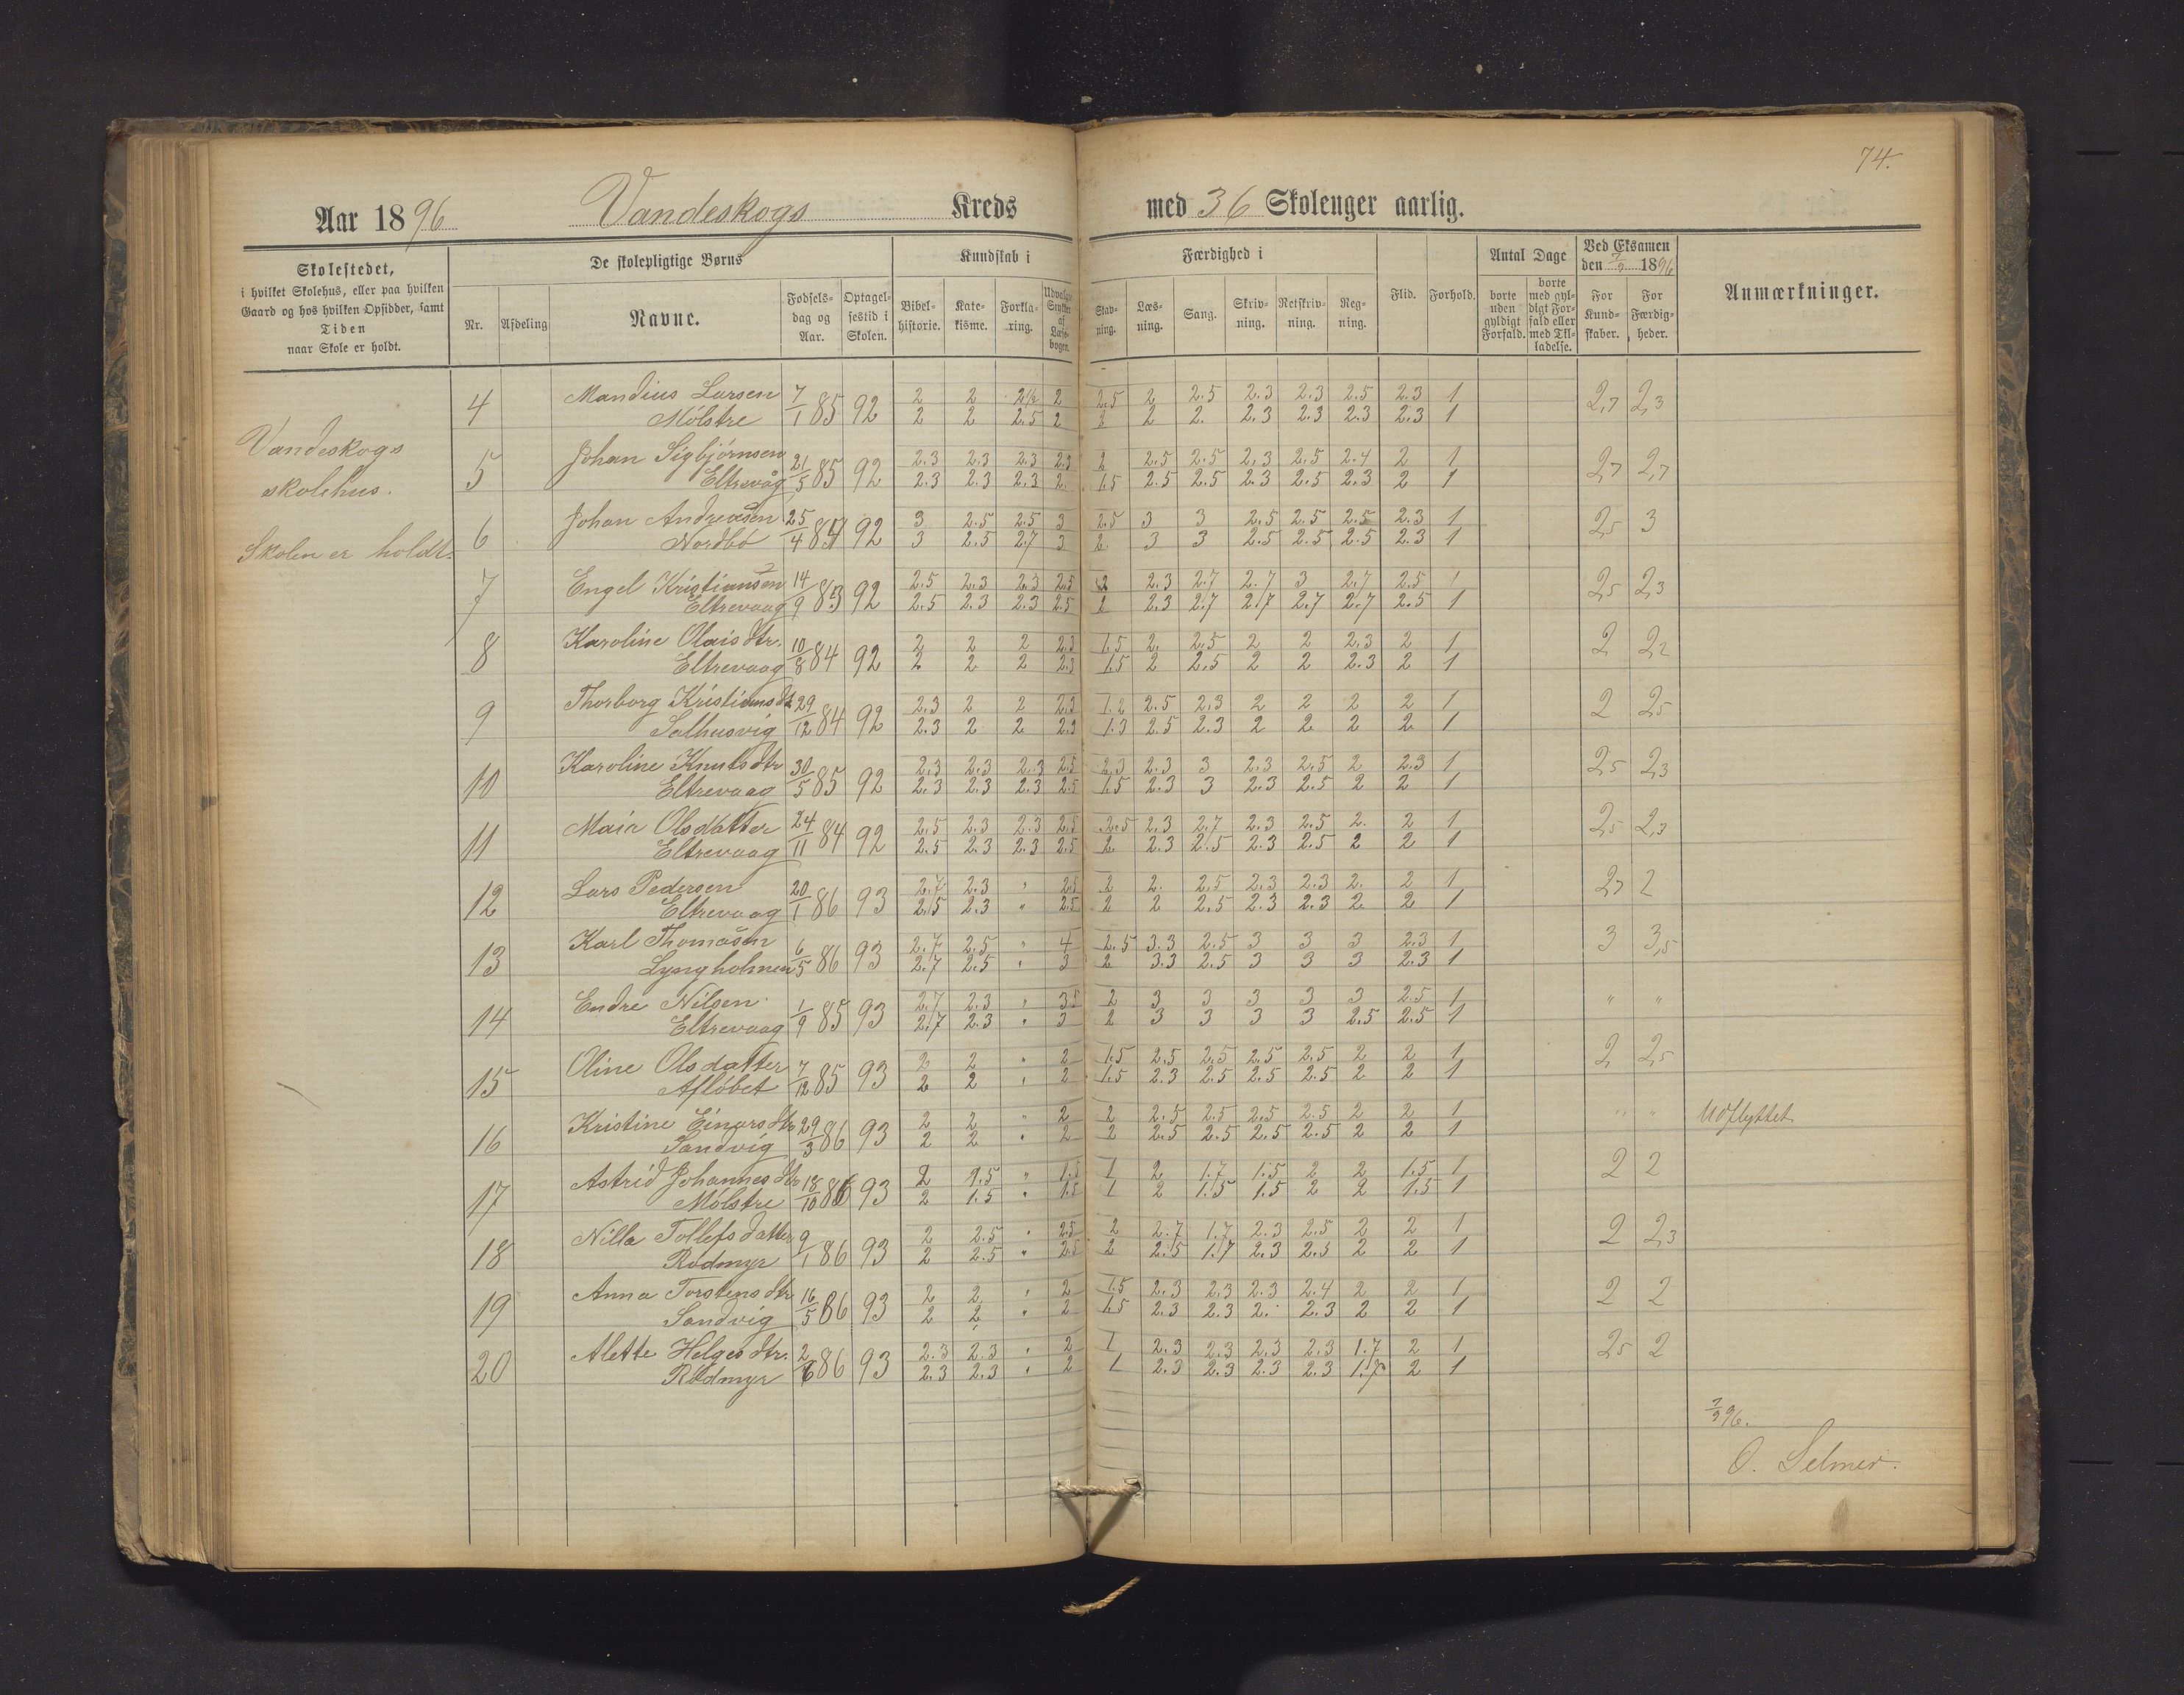 74.
Aar 1896 Vandeskogs Kreds med 36 Skolenger aarlig.
Skolestedet, i hvilket Skolehus, eller paa hvilken Gaard og hos hvilken Opsidder, samt Tiden naar Skole er holdt.
De skolepligtige Børns
Nr. Afdeling Navne. Fødselsdag og Aar. Optagelsestid i Skolen.
Kundskab i
Bibelhistorie. Katekisme. Forklaring. Udvalgte Stykker af Læsebogen.
Færdighed i
Stavning. Læsning. Sang. Skrivning. Retskrivning. Regning.
Flid. Forhold.
Antal Dage
borte uden gyldigt Forfald. borte med gyldigt Forfald eller med Tilladelse.
Ved Eksamen den 7/9 1896
For Kundskaber. For Færdigheder.
Anmærkninger.
Vandeskogs
skolehus.
Skolen er holdt.
4 Mandius Larsen 7/1 85 92 2 2 2½ 2 2.5 2 2.5 2.3 2.3 2.5 2.3 1 2,7 2,3
Mölstre 2 2 2.5 2 2 2 2. 2.3 2.3 2.3 2.3 1
5 Johan Sigbjörnsen 21/5 85 92 2.3 2.3 2.3 2.3 2 2.5 2.5 2.3 2.5 2.4 2 1 2,7 2,7
Eltrevåg 2.3 2.3 2.3 2. 1.5 2.5 2.5 2.3 2.5 2.3 2 1
6 Johan Andreasen 25/4 84 92 3 2.5 2.5 3 2.5 3 3 2.5 2.5 2.5 2.3 1 2,5 3
Nordbö 3 2.5 2.7 3 2 3 3 2.5 2.5 2.5 2.3 1
7 Engel Kristiansen 14/9 83 92 2.5 2.3 2.3 2.5 2 2.3 2.7 2.7 3 2.7 2.5 1 2,5 2,3
Eltrevaag 2.5 2.3 2.3 2.5 2 2.3 2.7 2.7 2.7 2.7 2.5 1
8 Karoline Olais dtr. 10/8 84 92 2 2 2 2.3 1.5 2. 2.5 2 2 2.3 2 1 2 2,2
Eltrevaag 2 2 2 2.3 1.5 2 2.5 2 2 2.3 2 1
9 Thorborg Kristians dt 29/12 84 92 2.3 2 2 2.3 1.2 2.5 2.3 2 2 2 2 1 2 2,5
Salhusvig 2.3 2 2 2.3 1.3 2.5 2.3 2 2 2 2 1
10 Karoline Knuts dtr 30/5 85 92 2.3 2.3 2.3 2.5 2.3 2.3 3 2.3 2.5 2 2.3 1 2,5 2,3
Eltrevaag 2.3 2.3 2.3 2.5 1.5 2.3 3 2.3 2.5 2 2 1
11 Olsdatter 24/11 84 92 2.5 2.3 2.3 2.5 2.5 2.3 2.7 2.3 2.5 2. 2 1 2,5 2,3
Eltrevaag 2.5 2.3 2.3 2.5 2. 2.3 2.5 2.3 2.5 2 2 1
12 Lars Pedersen 20/1 86 93 2.7 2.3 " 2.5 2 2. 2.5 2.3 2.3 2. 2 1 2,7 2
Eltrevaag 2.5 2.3 " 2.5 2 2 2.5 2.3 2.3 2 2 1
13 Karl Thomasen 6/5 86 93 2.7 2.5 " 4 2.5 3.3 2.5 3 3 3 2.3 1 3 3,5
Lyngholmen 2.7 2.5 " 3 2 3.3 2.5 3 3 3 2.3 1
14 Endre Nilsen 1/9 85 93 2.7 2.3 " 3.5 2 3 3 3 3 3 2.5 1 " "
Eltrevaag 2.7 2.3 " 3 2 3 3 3 3 2.5 2.5 1
15 Oline Olsdatter 7/12 85 93 2 2 " 2 1.5 2.5 2.5 2.5 2.5 2 2 1 2 2,5
Aflöbet 2 2 " 2 1.5 2.3 2.5 2.5 2.5 2 2 1
16 Kristine Einars dtr 29/3 86 93 2 2 " 2 2 2.5 2.5 2.5 2.5 2 2 1 " " Udflyttet.
Sandvig 2 2 " 2 2 2.5 2.5 2.5 2.5 2 2 1
17 Astrid Johannes dtr 18/10 86 93 2 1.5 " 1.5 1 2 1.7 1.5 2 2 1.5 1 2 2
Mölstre 2 1.5 " 1.5 1 2 1.5 1.5 2 2 1.5 1
18 Nilla Tollefsdatter 9/1 86 93 2 2.5 " 2.5 2 2.7 1.7 2.3 2.5 2 2 1 2 2,3
Rödmyr 2 2.5 " 2.5 2 2.5 1.7 2.3 2.5 2 2 1
19 Anna Torstens dtr 16/5 86 93 2 2 " 2 1.5 2.3 2.3 2.3 2.4 2 2 1 2 2
Sandvig 2 2 " 2 1.5 2.3 2.3 2. 2.3 2 2 1
20 Alette Helges dtr. 2/6 86 93 2.3 2.3 " 2 1 2.3 2.3 2.3 2.3 1.7 2 1 2,5 2
Rödmyr 2.3 2.3 " 2 1 2.3 2.3 2.3 2.3 1.7 2 1
7/9 96.
O. Selmer.